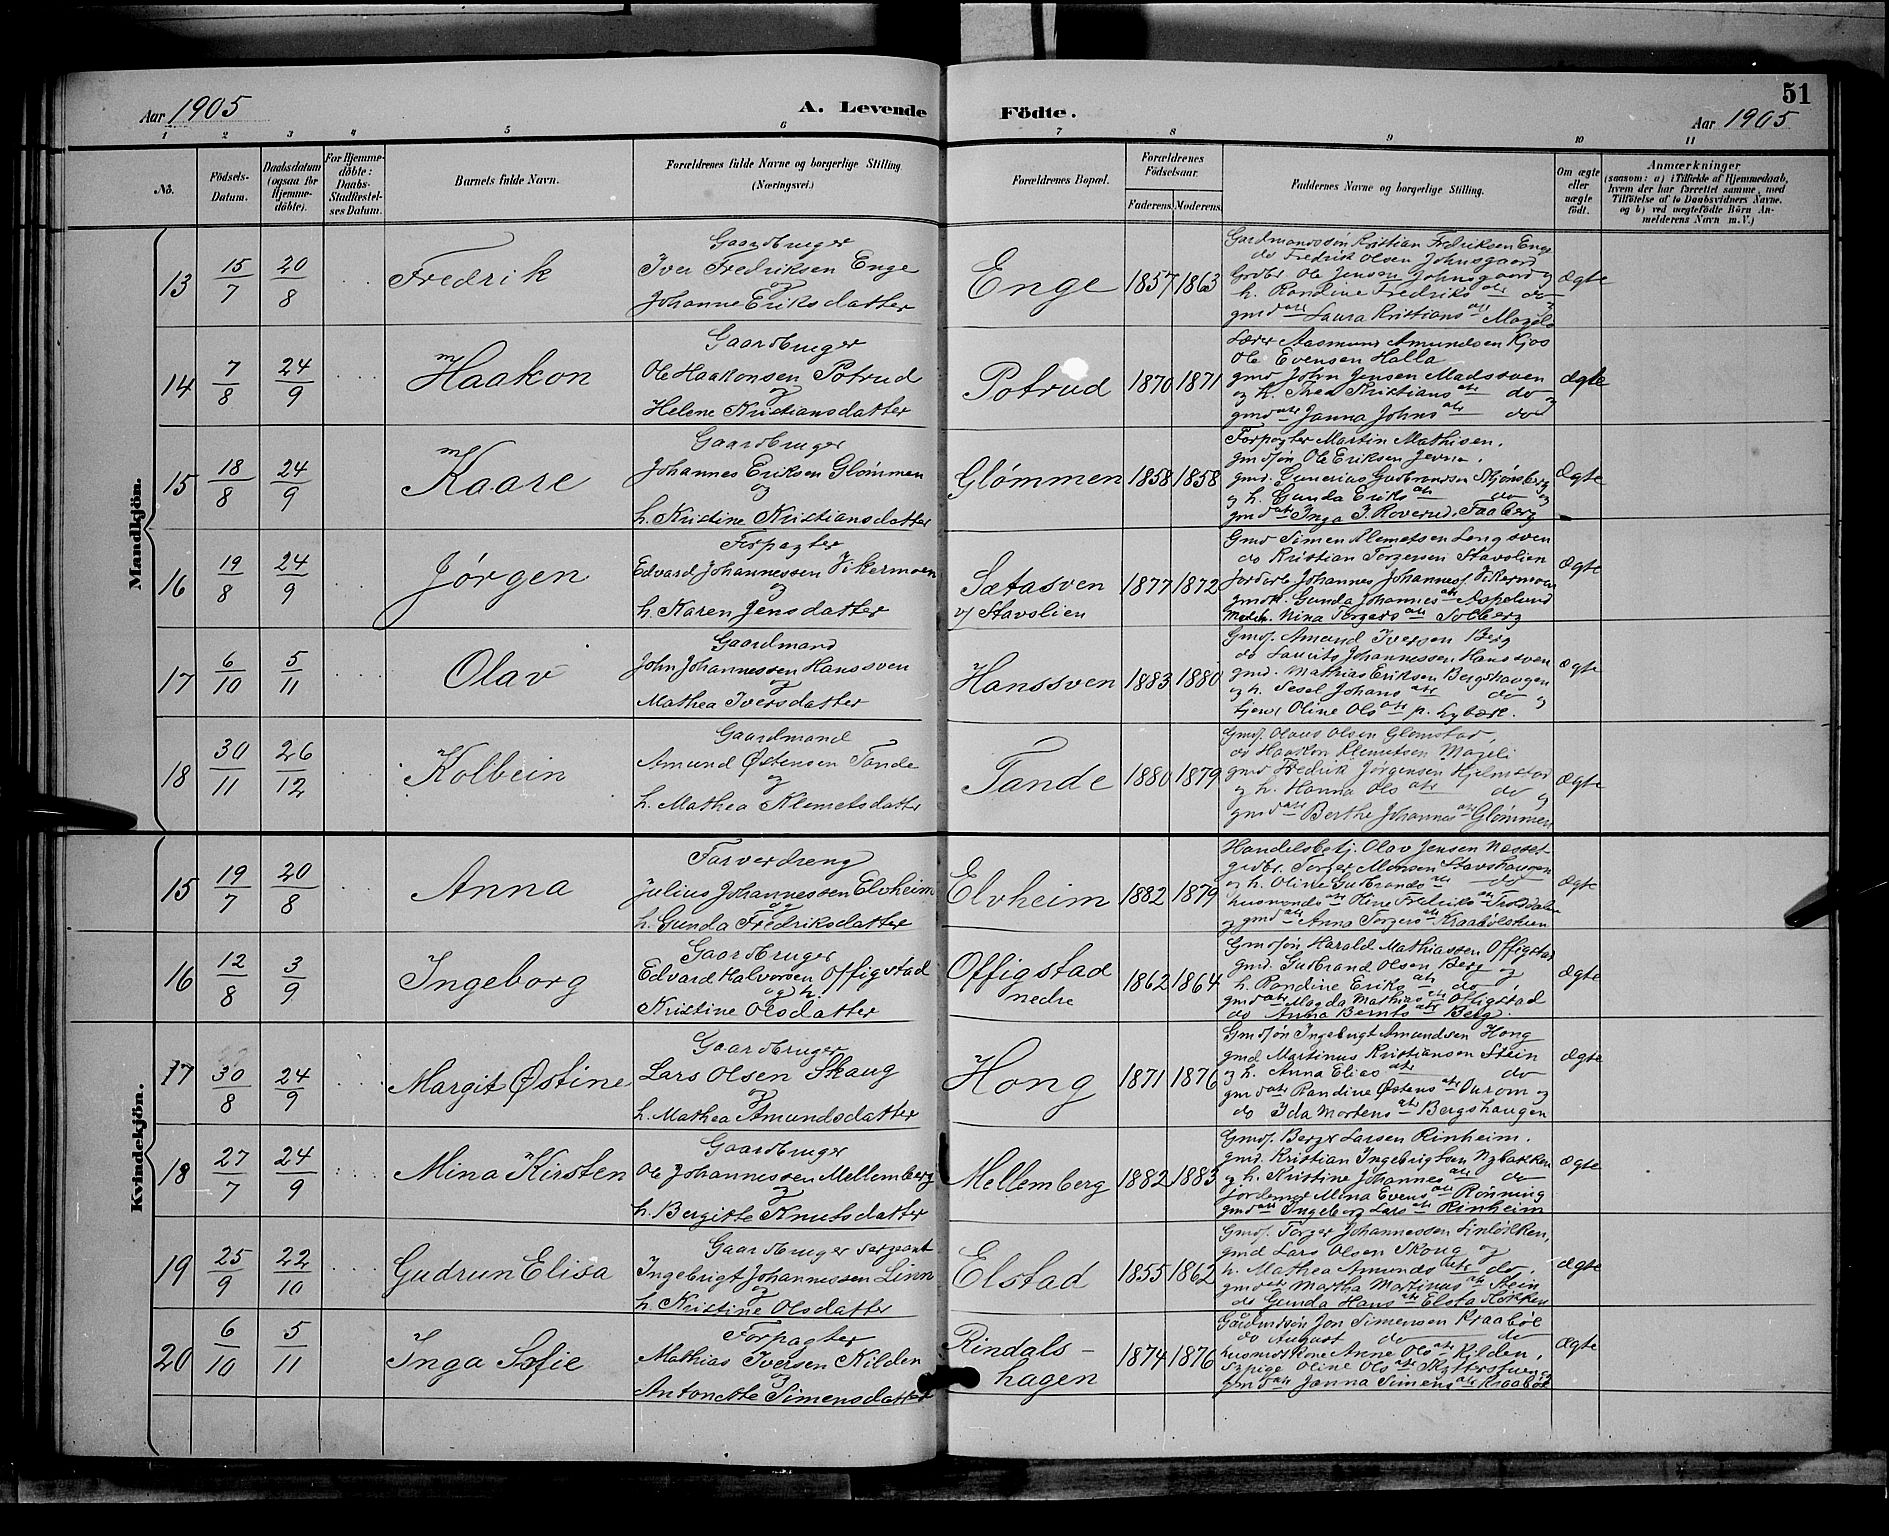 Aar 1905 A. Levende Födte. 51
Aar 1905
1 2 3 4 5 6 7 8 9 10 11
No. Födsels-Datum. Daabsdatum (ogsaa for Hjemme-döbte). For Hjemme-döbte: Daabs-Stadfæstel-ses Datum. Barnets fulde Navn. Forældrenes fulde Navne og borgerlige Stilling (Næringsvei.) Forældrenes Bopæl. Forældrenes Födselsaar. Faderens. Moderens. Faddernes Navne og borgerlige Stilling. Om ægte eller uægte födt. Anmærkninger
(saasom: a) i Tilfælde af Hjemmedaab, hvem der har forrettet samme, med Tilföielse af to Daabsvidners Navne. og b) ved uægtefödte Börn An-melderens Navn m.V.)
Mandkjön.
13 15/7 20/8 Fredrik
Gaardbruger
Iver Fredriksen Enge
og
Johanne Eriksdatter
Enge 1857 1863
Gardmandssön Kristian Fredriksen Enge
do Fredrik Olsen Johnsgaard
Grdbr Ole Jensen Johnsgaard og
h. Randine Fredriks dtr do
gmd dtr Laura Kristians dtr Mageli
Ægte
14 7/8 24/9 Haakon
Gaardbruger
Ole Haakonsen Potrud
og
Helene Kristiansdatter
Potrud 1870 1871
Lærer Aasmund Amundsen Kjos
Ole Evensen Halla
gmd John Jensen Madssven
og h. Thea Kristians dtr do og
gmd dtr Janna Johns dtr do
Ægte
15 18/8 24/9 Kaare
Gaardbruger
Johannes Eriksen Glømmen
og
h. Kristine Kristiansdatter
Glømmen 1858 1858
Forpagter Martin Mathisen.
gmdsön Ole Eriksen Jevne.
gmd. Gunerius Gudbrandsen Skjønsberg
og h. Gunda Eriks dtr do og
gmd dtr Inga J. Roverud. Faaberg
Ægte
16 19/8 24/9 Jørgen
Forpagter
Edvard Johannessen Vikermoen
og
h. Karen Jensdatter
Sætasven
v/ Stavslien
1877 1872
Gmd Simen Klemetsen Longsven
do Kristian Torgersen Stavslien
Jordarb. Johannes Johannes. Vikermoen
gmdk. Gunda Johannes dtr Aspelund
Nina Torgers dtr Solberg
Ægte
17 6/10 5/11 Olav
Gaardmand
John Johannessen Hanssven
og
Mathea Iversdatter
Hanssven 1883 1880
Gmds. Amund Iversen Berg
do Laurits Johannessen Hanssven
gmd. Mathias Eriksen Bergshaugen
og h. Sesel Johans dtr do og
tjener Oline Ols dtr p. Lybæk.
Ægte
18 30/11 26/12 Kolbein
Gaardmand
Amund Østensen Tande
og
h. Mathea Klemetsdatter
Tande 1880 1879
Gmds. Olaus Olsen Glomstad,
do Haakon Klemetsen Mageli
gmd Fredrik Jörgensen Hjelmstad
og h. Hanna Ols dtr do og
gmd dtr Berthe Johannes dtr Glømmen
Ægte
Kvindekjön.
15 19/7 20/8 Anna
Farverdreng
Julius Johannessen Elvheim
og
h. Gunda Fredriksdatter
Elvheim 1882 1879
Handelsbetj. Olav Jensen Næsset
grdbr. Torger Monsen Stavshaugen
og h. Oline Gudbrands dtr do
husmands dtr Oline Fredriks dtr
og gmd dtr Anna Torgers dtr Kraabölstuen
Ægte
16 12/8 3/9 Ingeborg
Gaardbruger
Edvard Halvorsen Offigstad
og h.
Kristine Olsdatter
Offigstad
nedre
1862 1864
Gmdsön Harald Mathiassen Offigstad
gmd. Gudbrand Olsen Berg og
h. Randine Eriks dtr do
gmd dtr Magda Mathias dtr Offigstad
do Anna Bernts dtr Berg.
Ægte
17 30/8 24/9 Margit Østine
Gaardbruger
Lars Olsen Skaug
og
h. Mathea Amundsdatter
Hong 1871 1876
Gmdsön Ingebrigt Amundsen Hong
gmd Martinus Kristiansen Stein
og h. Anna Elias dtr do
gmd dtr Randine Østens dtr Ourom og
do Ida Mortens dtr Bergshaugen
Ægte
18 27/7 24/9 Mina Kirsten
Gaardbruger
Ole Johannessen Mellemberg
og
h. Bergitte Knutsdatter
Mellemberg 1882 1883
Gmds. Berger Larsen Rinheim.
gmd. Kristian Ingebrigtsen Nybakken
og h. Kristine Johannes dtr do
jordemor Mina Evens dtr Rønning
gmd dtr Ingeborg Lars dtr Rinheim
Ægte
19 25/9 22/10 Gudrun Elisa
Gaardbruger sergeant
Ingebrigt Johannessen Linn
og
h. Kristine Olsdatter
Elstad 1855 1862
Gmds. Torger Johannessen Linløkken,
gmd Lars Olsen Skoug og
h. Mathea Amunds dtr do.
gmd dtr Martha Martinus dtr Stein
do Gunda Hans dtr Elstaløkken
Ægte
20 6/10 5/11 Inga Sofie
Forpagter
Mathias Iversen Kilden
og
Antonette Simensdatter
Rindals-
hagen
1874 1876
Gaardmdsön Jon Simensen Kraaböl
do August do do
husmdskone Anne Ols dtr Kilden.
Sypige Oline Ols dtr Skytterstuen og
gmd dtr Janna Simens dtr Kraaböl
Ægte